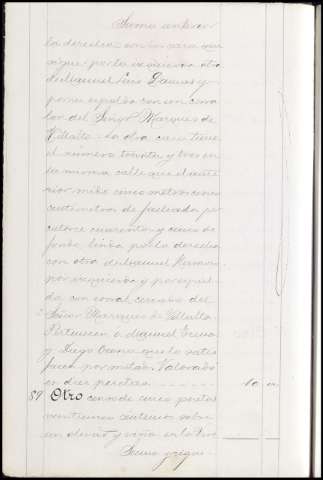 Suma anterior
la derecha con
sigue por la izquierda otra
de Manuel Luis y
por su espalda con un corra
lar del Señor Marques de
Villalta. La otra casa tiene
el número treinta y tres en
la misma calle que el ante
rior mide cinco metros cinco
centimetros de fachada por
catorce cuarenta y cinco de
fondo, linda por la derecha
con otra de Manuel
por izquierda y por espal
da con corral cercado del
Señor Marques de Villalta
Pertenecen a Manuel
y Diego que lo satis
facen por mitad. Valorado
en diez pesetas 10
89 Otro censo de cinco pesetas
veinticinco centimos sobre
un olivar y viña en la
Suma y sigue